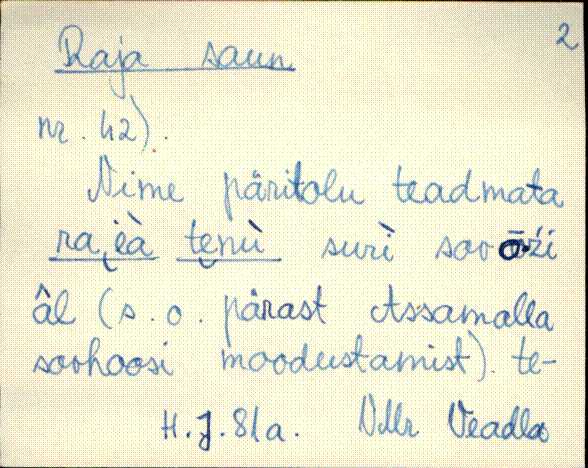 2
Raja saun
nr. 42).
Nime päritolu teadmata
surì
âl (s.o. pärast Assamalla
sovhoosi moodustamist). te-
H.J. 81a. Vllr Veadla